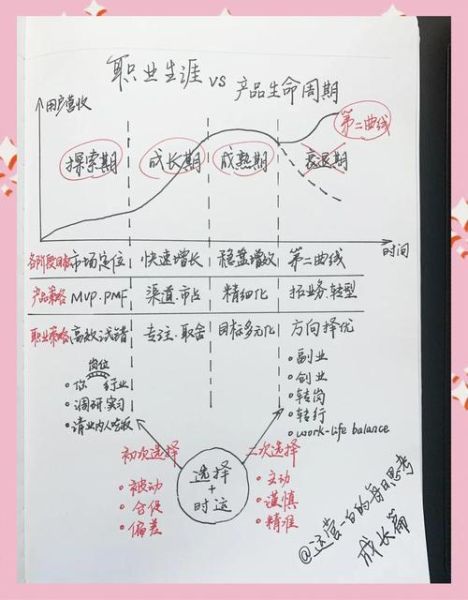 职业生涯 vs 产品生命周期
用户营收
第二曲线
探索期 成长期 成熟期 衰退期
时间
各阶段目标 市场定位 快速增长 稳盘增效 第二曲线
产品策略 MVP.PMF 渠道.市占 精细化 拓业务.转型
职业策略 高效试错 专注.取舍 目标多元化 方向择优
岗位
·你 行业
·调研.实习
·请业内人吃饭
·副业
·创业
·转岗
·转行
·work-life balance
初次选择
·被动
·仓促
·偏差
选择
+
时运
二次选择
·主动
·谨慎
·精准
@运营一白的每日思考
成长篇